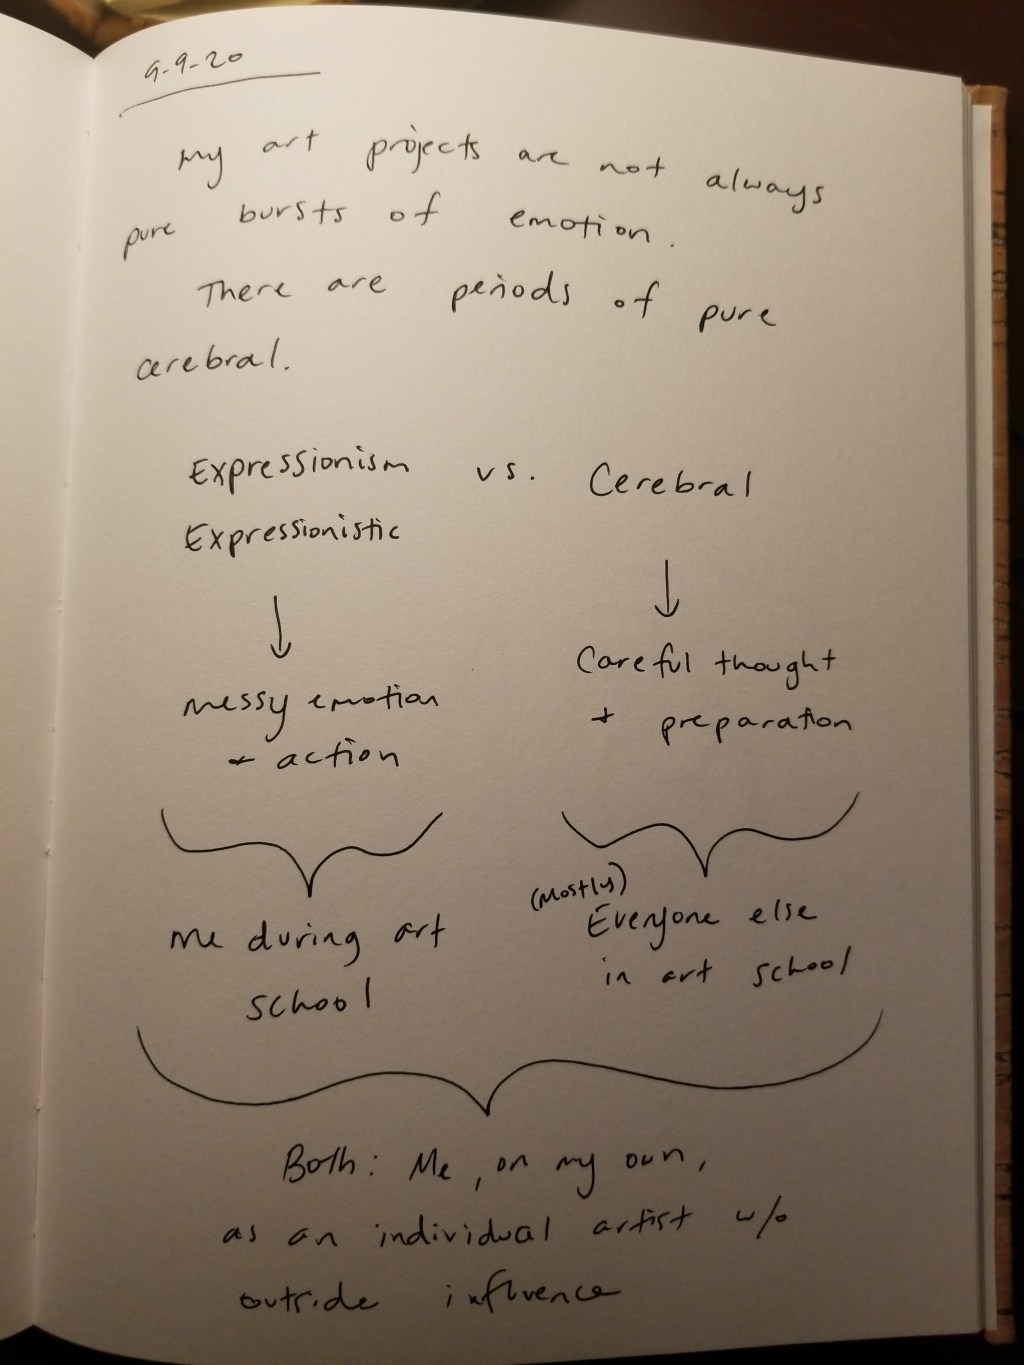 9-9-20
My art projects are not always
pure bursts of emotion.
There are periods of pure
cerebral.
Expressionism vs. Cerebral
Expressionistic
Messy emotion
+ action
Careful thought
+ preparation
Me during art
school
(Mostly)
Everyone else
in art school
Both: Me, on my own,
as an individual artist w/o
outside influence